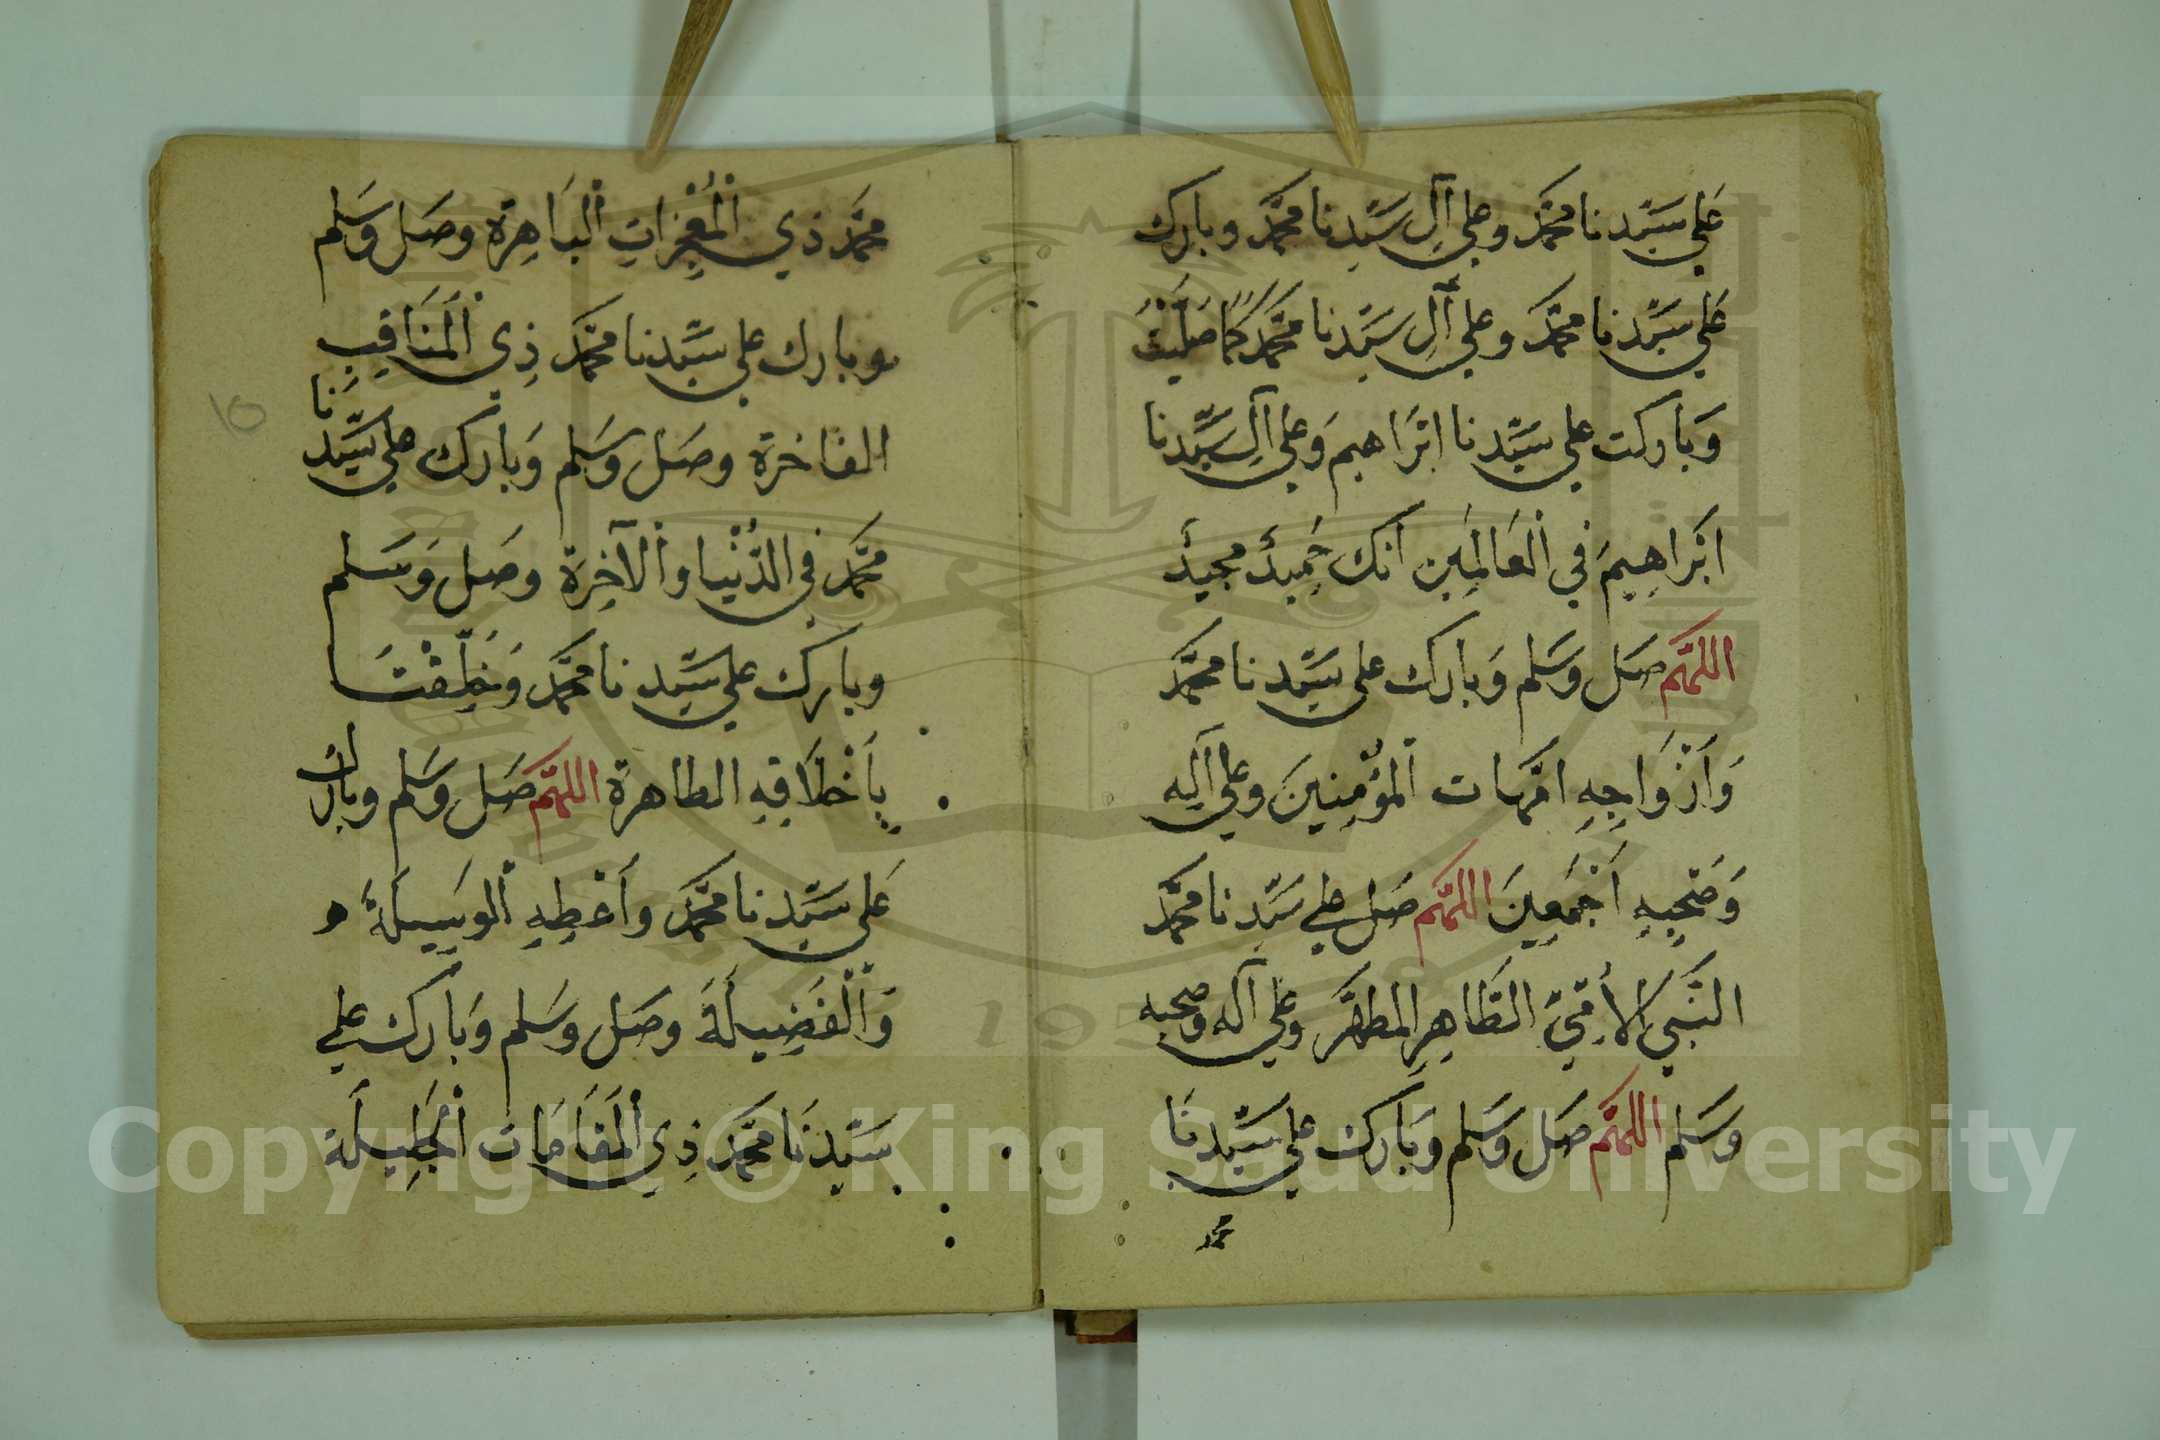 عَلي سَيّدنا محمَّد وعلي آلِ سَيّدِنا محمَّد وبارك
عَلي سَيّدنا محمَّد وعلي آلِ سَيّدِنا محمَّد كمَا صَلَّيْتَ
وَبَاركت علي سَيّدنا ابْرَاهيم وَعَلي آلِ سَيِّدنا
ابْرَاهِيمَ فِي الْعَالمِين انك حَمِيدٌ مجيدٌ
اللهمّ صَل وَسَلم وَبارك علي سَيّدنا محمَّد
وَاَزْوَاجِهِ امّهات الْمؤْمِنِينَ وعلي آلِه
وَصَحْبِهِ اَجْمَعِينَ اللهمّ صَل علي سَيّدنا محمَّد
النَّبي الاُمّيّ الطَّاهِرِ المطهَّر وعَلي آله وصحبه
وَسَلم اللهمّ صَل وَسَلم وَبَارك علي سَيّدنَا
محمد
محمَّد ذي الْمُعْجِزَاتِ الْبَاهِرَة وصَل وسَلم
وبارك علي سَيّدنا محمَّد ذِي الْمَنَاقِبِ
الفاخرة وصَل وسَلم وَبَارك علي سَيِّدنَا
محمَّد في الدُّنْيا والْآخِرَة وصَل وَسَلم
وبارك علي سَيّدنا محمَّد وَخَلِّقْنَا
بِاَخْلَاقِهِ الطاهرة اللهمّ صَل وسَلم وبارك
عَلي سَيّدنا محمَّد واَعْطِهِ الْوسِيلَةَ
وَالْفَضِيلَةَ وصَل وسَلم وَبَارك علي
سَيّدنَا محمَّد ذِي الْمَقَامَات الْجَلِيلَة
١٥
Copyright © King Saud University